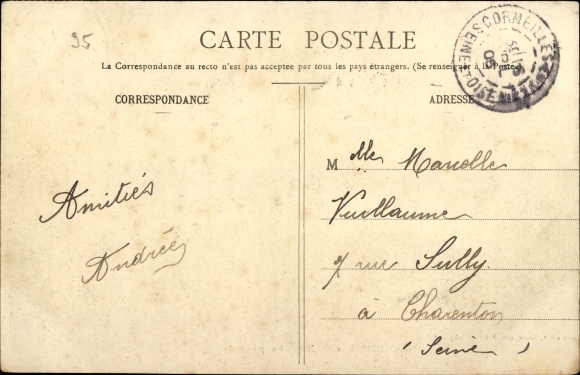 95
CARTE POSTALE
La Correspondance au recto n'est pas acceptée par tous les pays étrangers. (Se renseigner à la Poste)
CORRESPONDANCE
ADRESSE
CORMEILLES
SEINE ET OISE
Amitiés
Andrée
Mlle Marcelle
Vuillaume
7 rue Sully
à Charenton
(Seine)